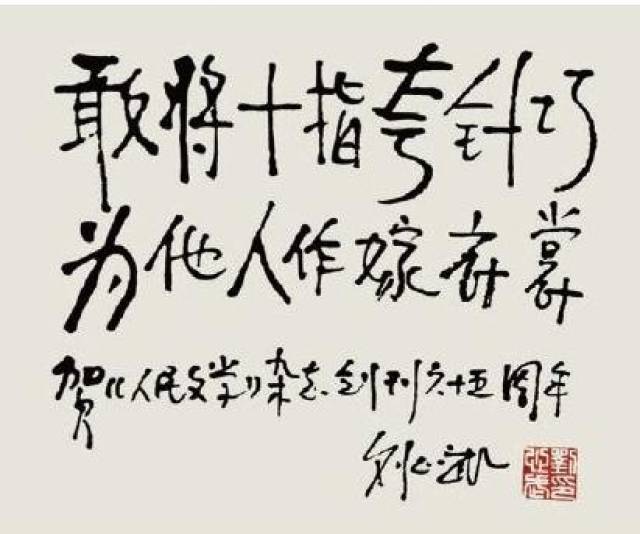 敢将十指夸针巧
为他人作嫁衣裳
贺《人民文学》杂志创刊六十五周年
刘心武
劉印心武